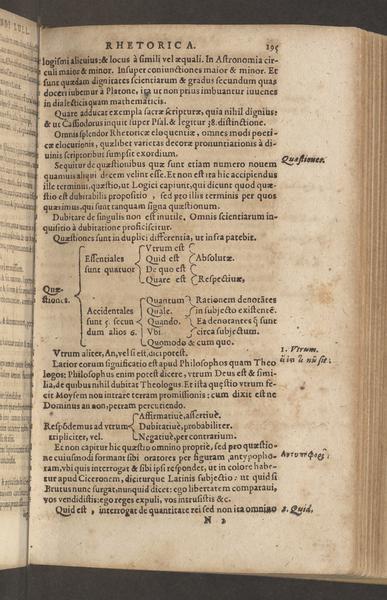 RHETORICA. 195
logismi alicuius: & locus à simili vel æquali. In Astronomia cir-
culi maior & minor. Insuper coniunctiones maior & minor. Et
sunt quædam dignitates scientiarum & gradus secundum quas
doceri iubemur à Platone, ita ut non prius imbuantur iuuenes
in dialecticis quam mathematicis.
Quare adducat exempla sacræ scripturæ, quia nihil dignius:
& ut Cassiodorus inquit super Psal. & legitur 38. distinctione.
Omnis splendor Rhetoricæ eloquentiæ, omnes modi poeti-
cæ elocutionis, quælibet varietas decoræ pronuntiationis à di-
uinis scripturis sumpsit exordium.
Sequitur de quæstionibus quæ sunt etiam numero nouem
Quæstiones.
quamuis aliqui decem velint esse. Et non est ita hic accipiendus
ille terminus, quæstio, ut Logici capiunt, qui dicunt quod quæ-
stio est dubitabilis propositio, sed pro illis terminis per quos
quærimus, qui sunt tanquam signa quæstionum.
Dubitare de singulis non est inutile. Omnis scientiarum in-
quisitio à dubitatione proficiscitur.
Quæstiones sunt in duplici differentia, ut infra patebit.
Quæ-
stiones.
Essentiales
sunt quatuor
Vtrum est
Quid est
Absolutæ.
De quo est
Quare est
Respectiuæ,
Accidentales
sunt 5. secun
dum alios 6.
Quantum
Quale.
Quando.
Vbi.
Quomodo & cum quo.
Rationem denotãtes
in subiecto existentẽ.
Ea denotantes q̃ sunt
circa subiectum.
Vtrum aliter, An, vel si est, dici potest.
1. Vtrum.
Latior eorum significatio est apud Philosophos quam Theo
logos: Philosophus enim potest dicere, vtrum Deus est & simi-
lia, de quibus nihil dubitat Theologus. Et ista quæstio vtrum fe-
cit Moysem non intrare terram promissionis: cum dixit est ne
Dominus an non, petram percutiendo.
Respõdemus ad vtrum
tripliciter, vel
Affirmatiuè, assertiuè.
Dubitatiuè, probabiliter.
Negatiuè, per contrarium.
Et non capitur hic quæstio omnino propriè, sed pro quæstio-
ne cuiusmodi formant sibi oratores per figuram antypopho-
ram, vbi quis interrogat & sibi ipsi respondet, ut in colore habe-
tur apud Ciceronem, diciturque Latinis subiectio: ut quid si
Brutus nunc surgat, nunquid dicet: ego libertatem comparaui,
vos vendidistis: ego reges expuli, vos intrusistis &c.
Quid est, interrogat de quantitate rei sed non ita omnino
2. Quid.
N 2